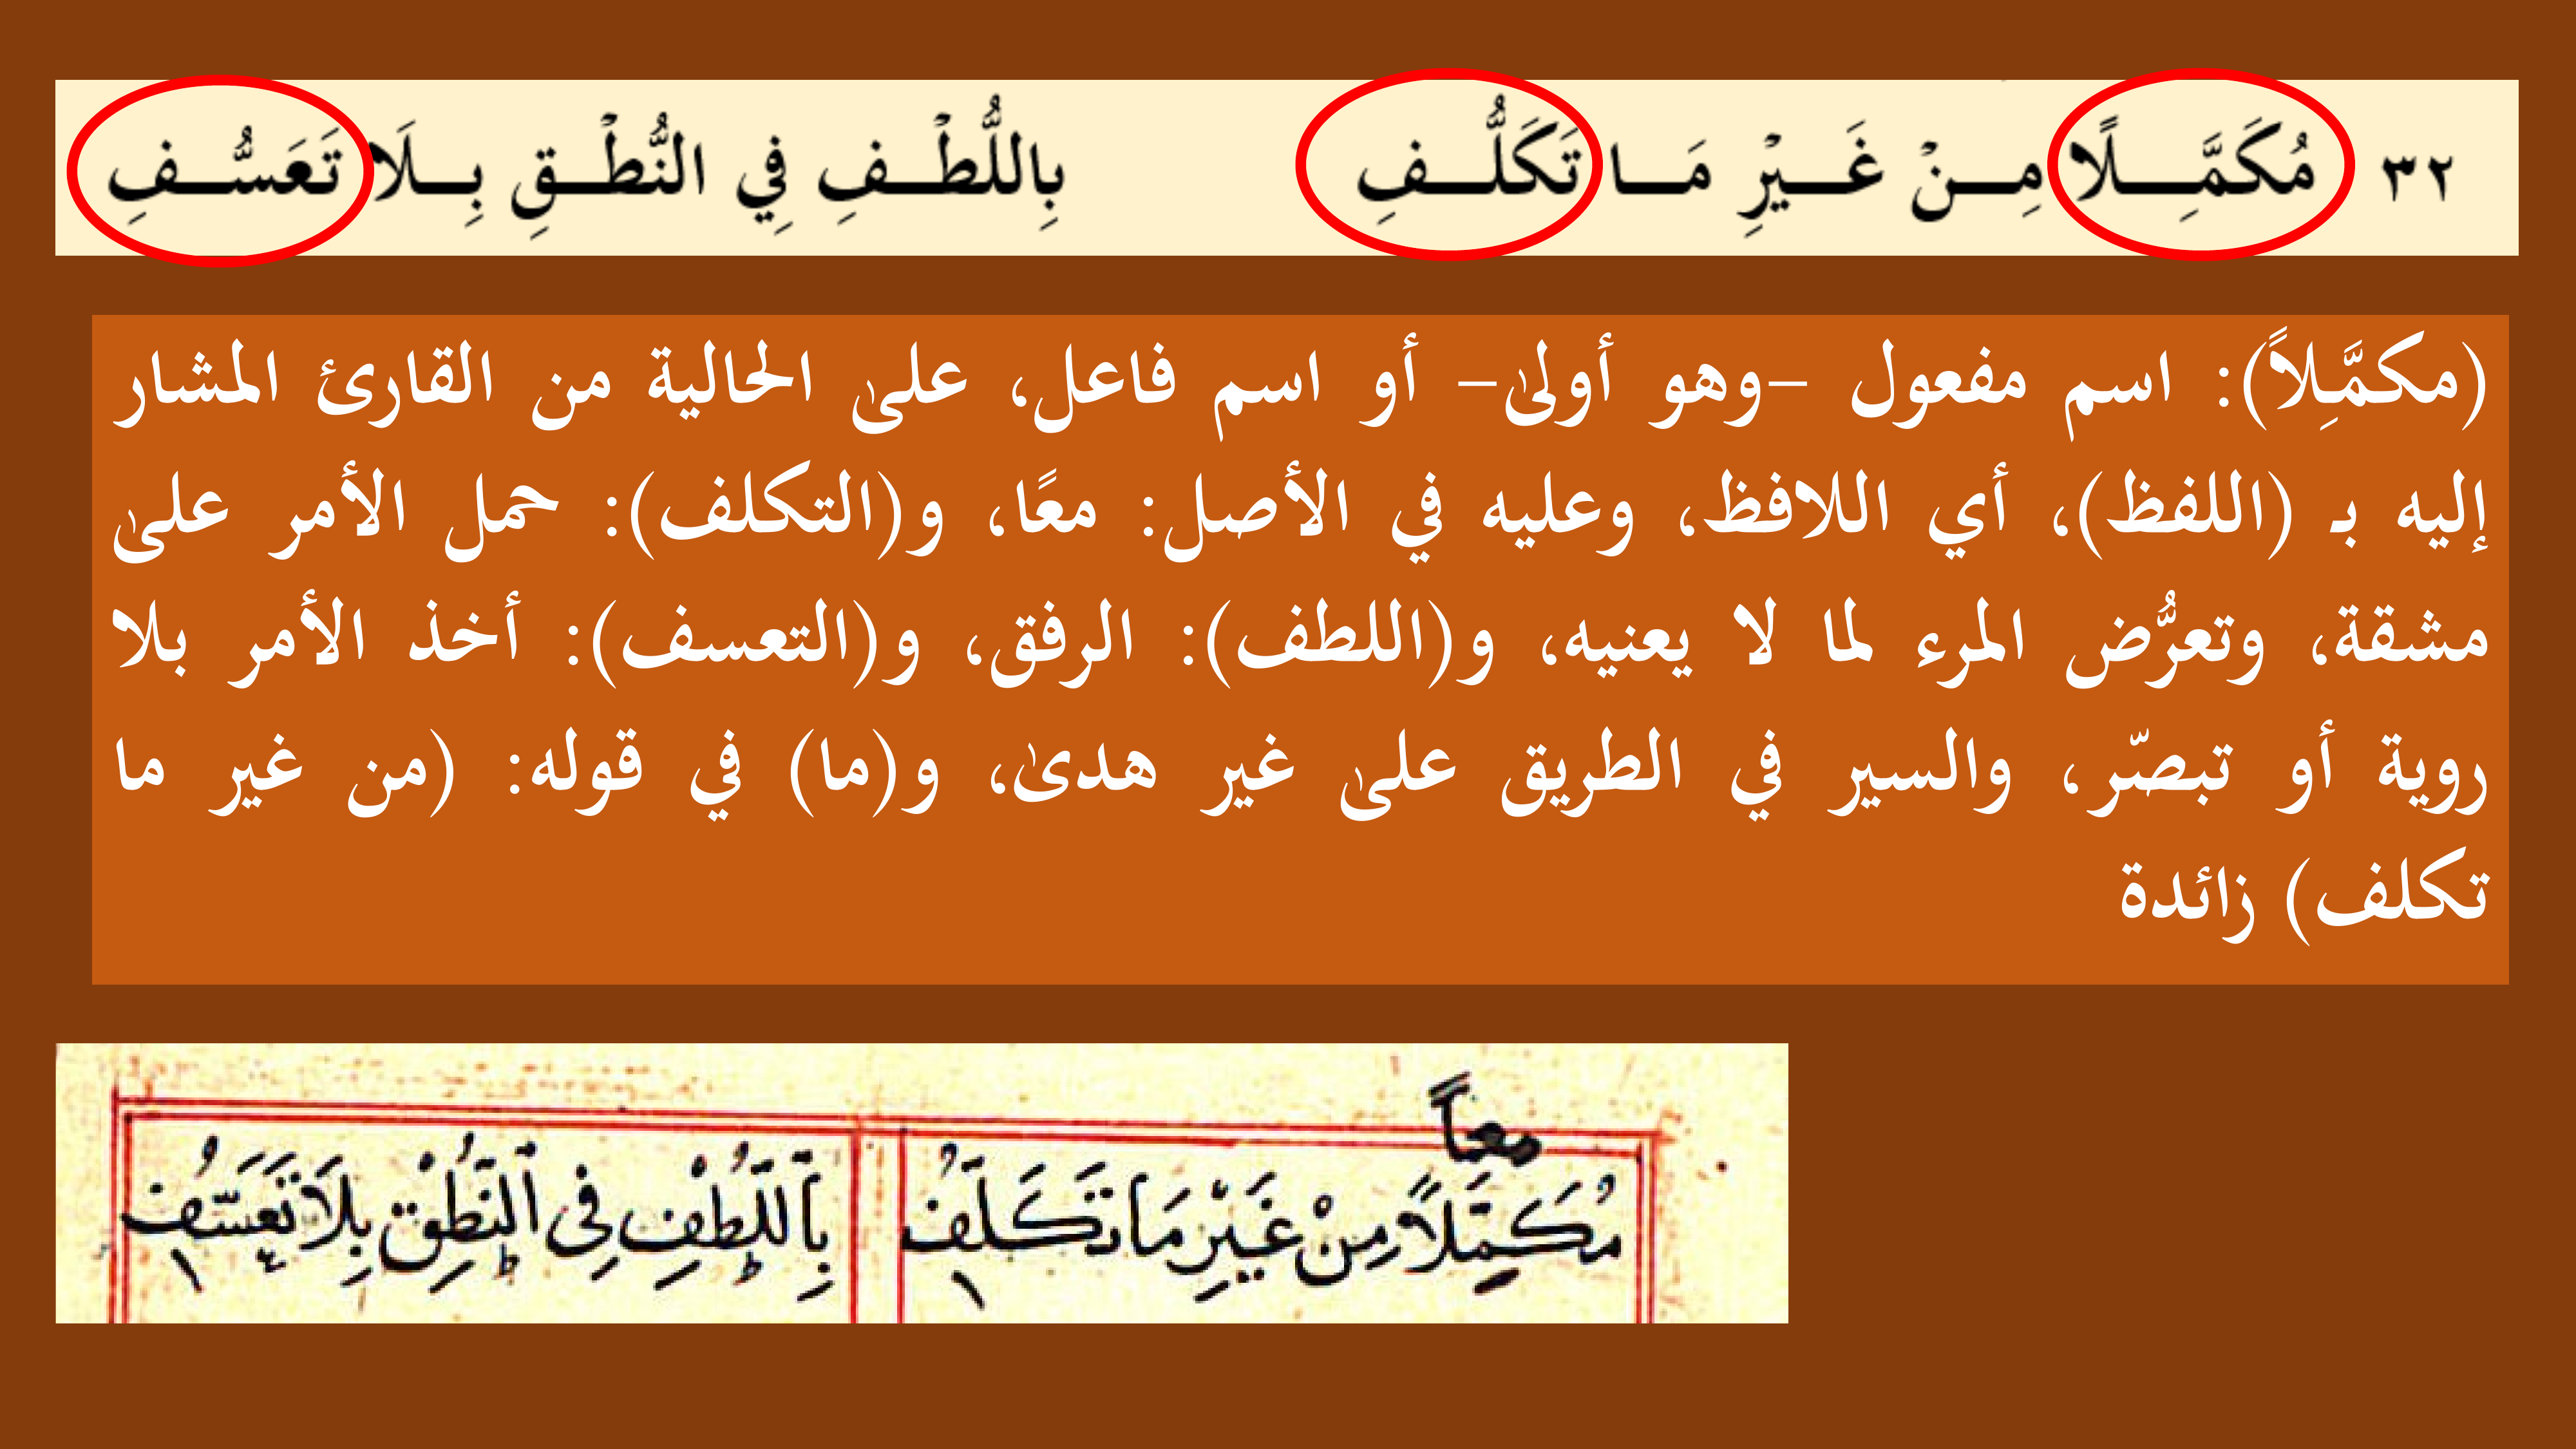 ٣٢ مُكَمَّـِـلًا مِـنْ غَـيْرِ مَـا تَكَلُّـفِ بِاللُّطْـفِ فِي النُّطْـقِ بِـلَا تَعَسُّـفِ
(مكمَّـِلاً): اسم مفعول –وهو أولىٰ– أو اسم فاعل، علىٰ الحالية من القارئ المشار
إليه بـ (اللفظ)، أي اللافظ، وعليه في الأصل: معًا، و(التكلف): حمل الأمر علىٰ
مشقة، وتعرُّض المرء لما لا يعنيه، و(اللطف): الرفق، و(التعسف): أخذ الأمر بلا
روية أو تبصّر، والسير في الطريق علىٰ غير هدىٰ، و(ما) في قوله: (من غير ما
تكلف) زائدة
معاً
مُكَمَِّلًا مِنْ غَيْرِ مَا تَكَلُّفِ بِاللُّطْفِ فِى النُّطْقِ بِلَا تَعَسُّفِ